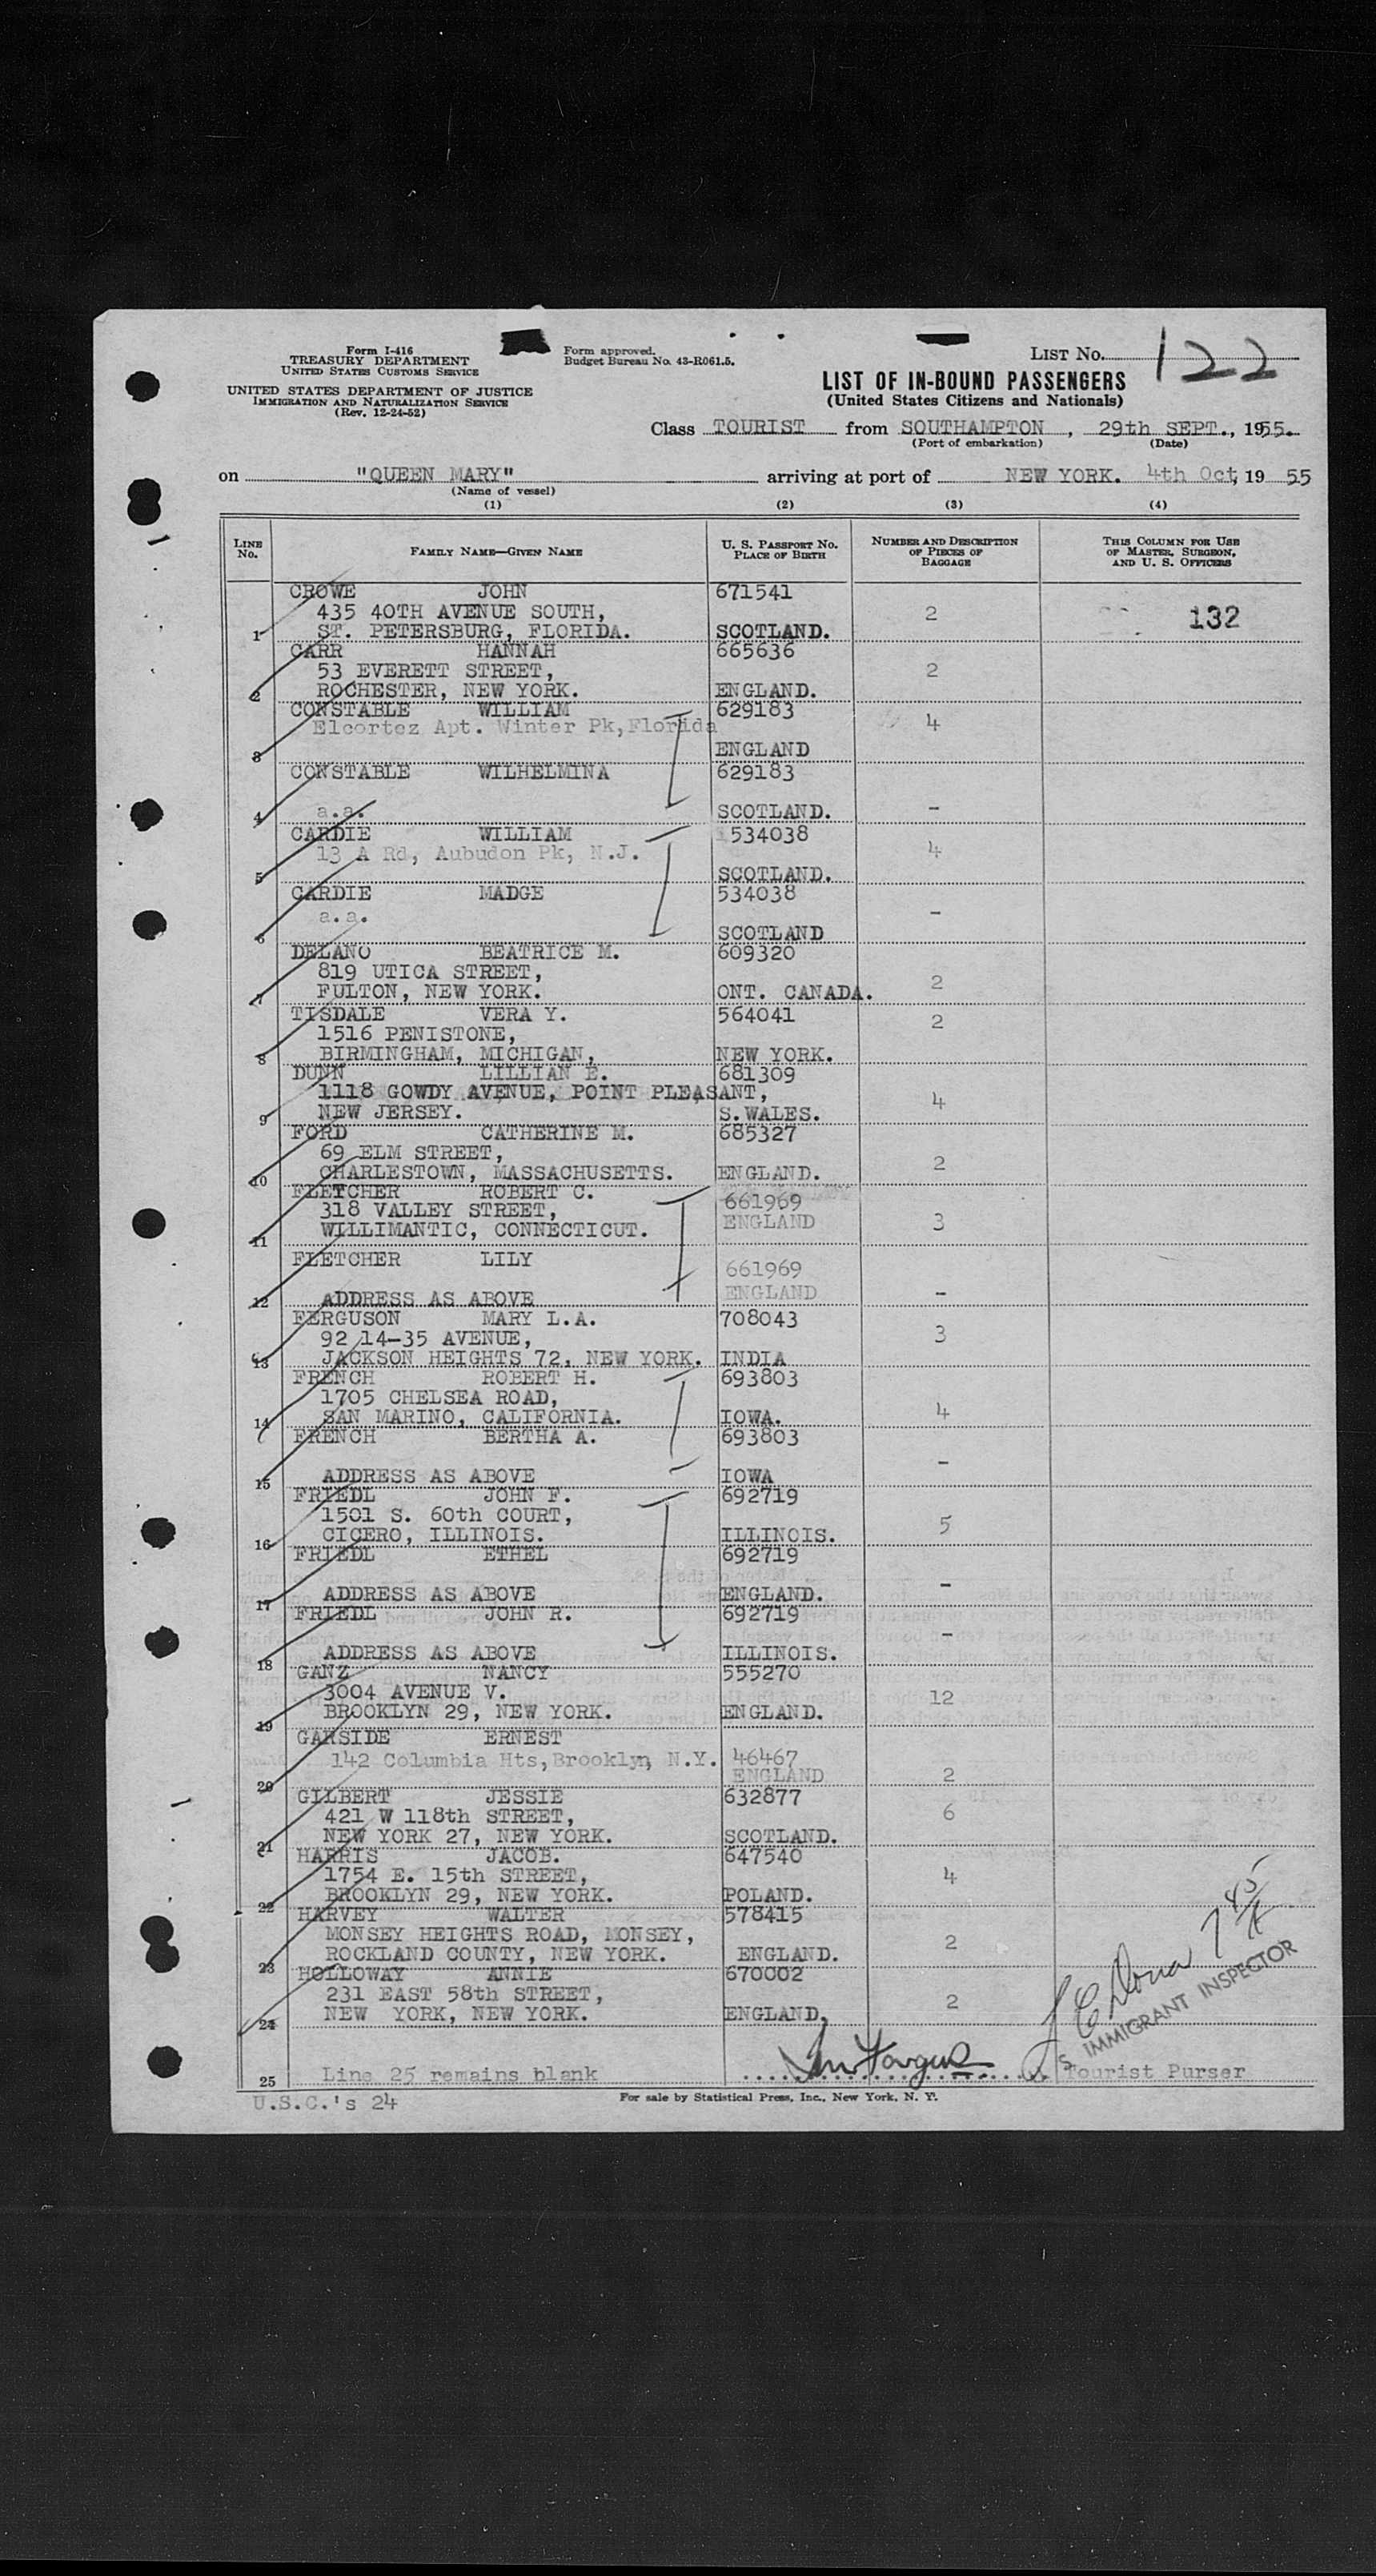 Form I-416
TREASURY DEPARTMENT
UNITED STATES CUSTOMS SERVICE
UNITED STATES DEPARTMENT OF JUSTICE
IMMIGRATION AND NATURALIZATION SERVICE
(Rev. 12-24-52)
Form approved.
Budget Bureau No. 43-R061.5.
LIST No. 122
LIST OF IN-BOUND PASSENGERS
(United States Citizens and Nationals)
Class TOURIST from SOUTHAMPTON, 29th SEPT., 1955.
(Port of embarkation) (Date)
on "QUEEN MARY" arriving at port of NEW YORK. 4th Oct, 19 55
(Name of vessel)
(1) (2) (3) (4)
LINE No. FAMILY NAME—GIVEN NAME U. S. PASSPORT NO. PLACE OF BIRTH NUMBER AND DESCRIPTION OF PIECES OF BAGGAGE THIS COLUMN FOR USE OF MASTER, SURGEON, AND U. S. OFFICERS
CROWE JOHN 671541
435 40TH AVENUE SOUTH, 2 132
1 ST. PETERSBURG, FLORIDA. SCOTLAND.
CARR HANNAH 665636
53 EVERETT STREET, 2
2 ROCHESTER, NEW YORK. ENGLAND.
CONSTABLE WILLIAM 629183
Elcortez Apt. Winter Pk, Florida 4
3 ENGLAND
CONSTABLE WILHELMINA 629183
4 a.a. SCOTLAND. -
CARDIE WILLIAM 534038
13 A Rd, Aubudon Pk, N.J. 4
5 SCOTLAND.
CARDIE MADGE 534038
a.a. -
6 SCOTLAND
DELANO BEATRICE M. 609320
819 UTICA STREET, 2
7 FULTON, NEW YORK. ONT. CANADA.
TISDALE VERA Y. 564041
1516 PENISTONE, 2
8 BIRMINGHAM, MICHIGAN, NEW YORK.
DUNN LILLIAN E. 681309
1118 GOWDY AVENUE, POINT PLEASANT, 4
9 NEW JERSEY. S.WALES.
FORD CATHERINE M. 685327
69 ELM STREET, 2
10 CHARLESTOWN, MASSACHUSETTS. ENGLAND.
FLETCHER ROBERT C. 661969
318 VALLEY STREET, ENGLAND 3
11 WILLIMANTIC, CONNECTICUT.
FLETCHER LILY 661969
12 ADDRESS AS ABOVE ENGLAND -
FERGUSON MARY L.A. 708043
92 14-35 AVENUE, 3
13 JACKSON HEIGHTS 72, NEW YORK. INDIA
FRENCH ROBERT H. 693803
1705 CHELSEA ROAD, 4
14 SAN MARINO, CALIFORNIA. IOWA.
FRENCH BERTHA A. 693803
15 ADDRESS AS ABOVE IOWA -
FRIEDL JOHN F. 692719
1501 S. 60th COURT, 5
16 CICERO, ILLINOIS. ILLINOIS.
FRIEDL ETHEL 692719
17 ADDRESS AS ABOVE ENGLAND. -
FRIEDL JOHN R. 692719
18 ADDRESS AS ABOVE ILLINOIS. -
GANZ NANCY 555270
3004 AVENUE V. 12
19 BROOKLYN 29, NEW YORK. ENGLAND.
GARSIDE ERNEST
142 Columbia Hts, Brooklyn, N.Y. 46467
20 ENGLAND 2
GILBERT JESSIE 632877
421 W 118th STREET, 6
21 NEW YORK 27, NEW YORK. SCOTLAND.
HARRIS JACOB. 647540
1754 E. 15th STREET, 4
22 BROOKLYN 29, NEW YORK. POLAND.
HARVEY WALTER 578415
MONSEY HEIGHTS ROAD, MONSEY, 2
23 ROCKLAND COUNTY, NEW YORK. ENGLAND.
HOLLOWAY ANNIE 670002
231 EAST 58th STREET, 2
24 NEW YORK, NEW YORK. ENGLAND.
IMMIGRANT INSPECTOR
25 Line 25 remains blank Tourist Purser
U.S.C.'s 24
For sale by Statistical Press, Inc., New York, N. Y.